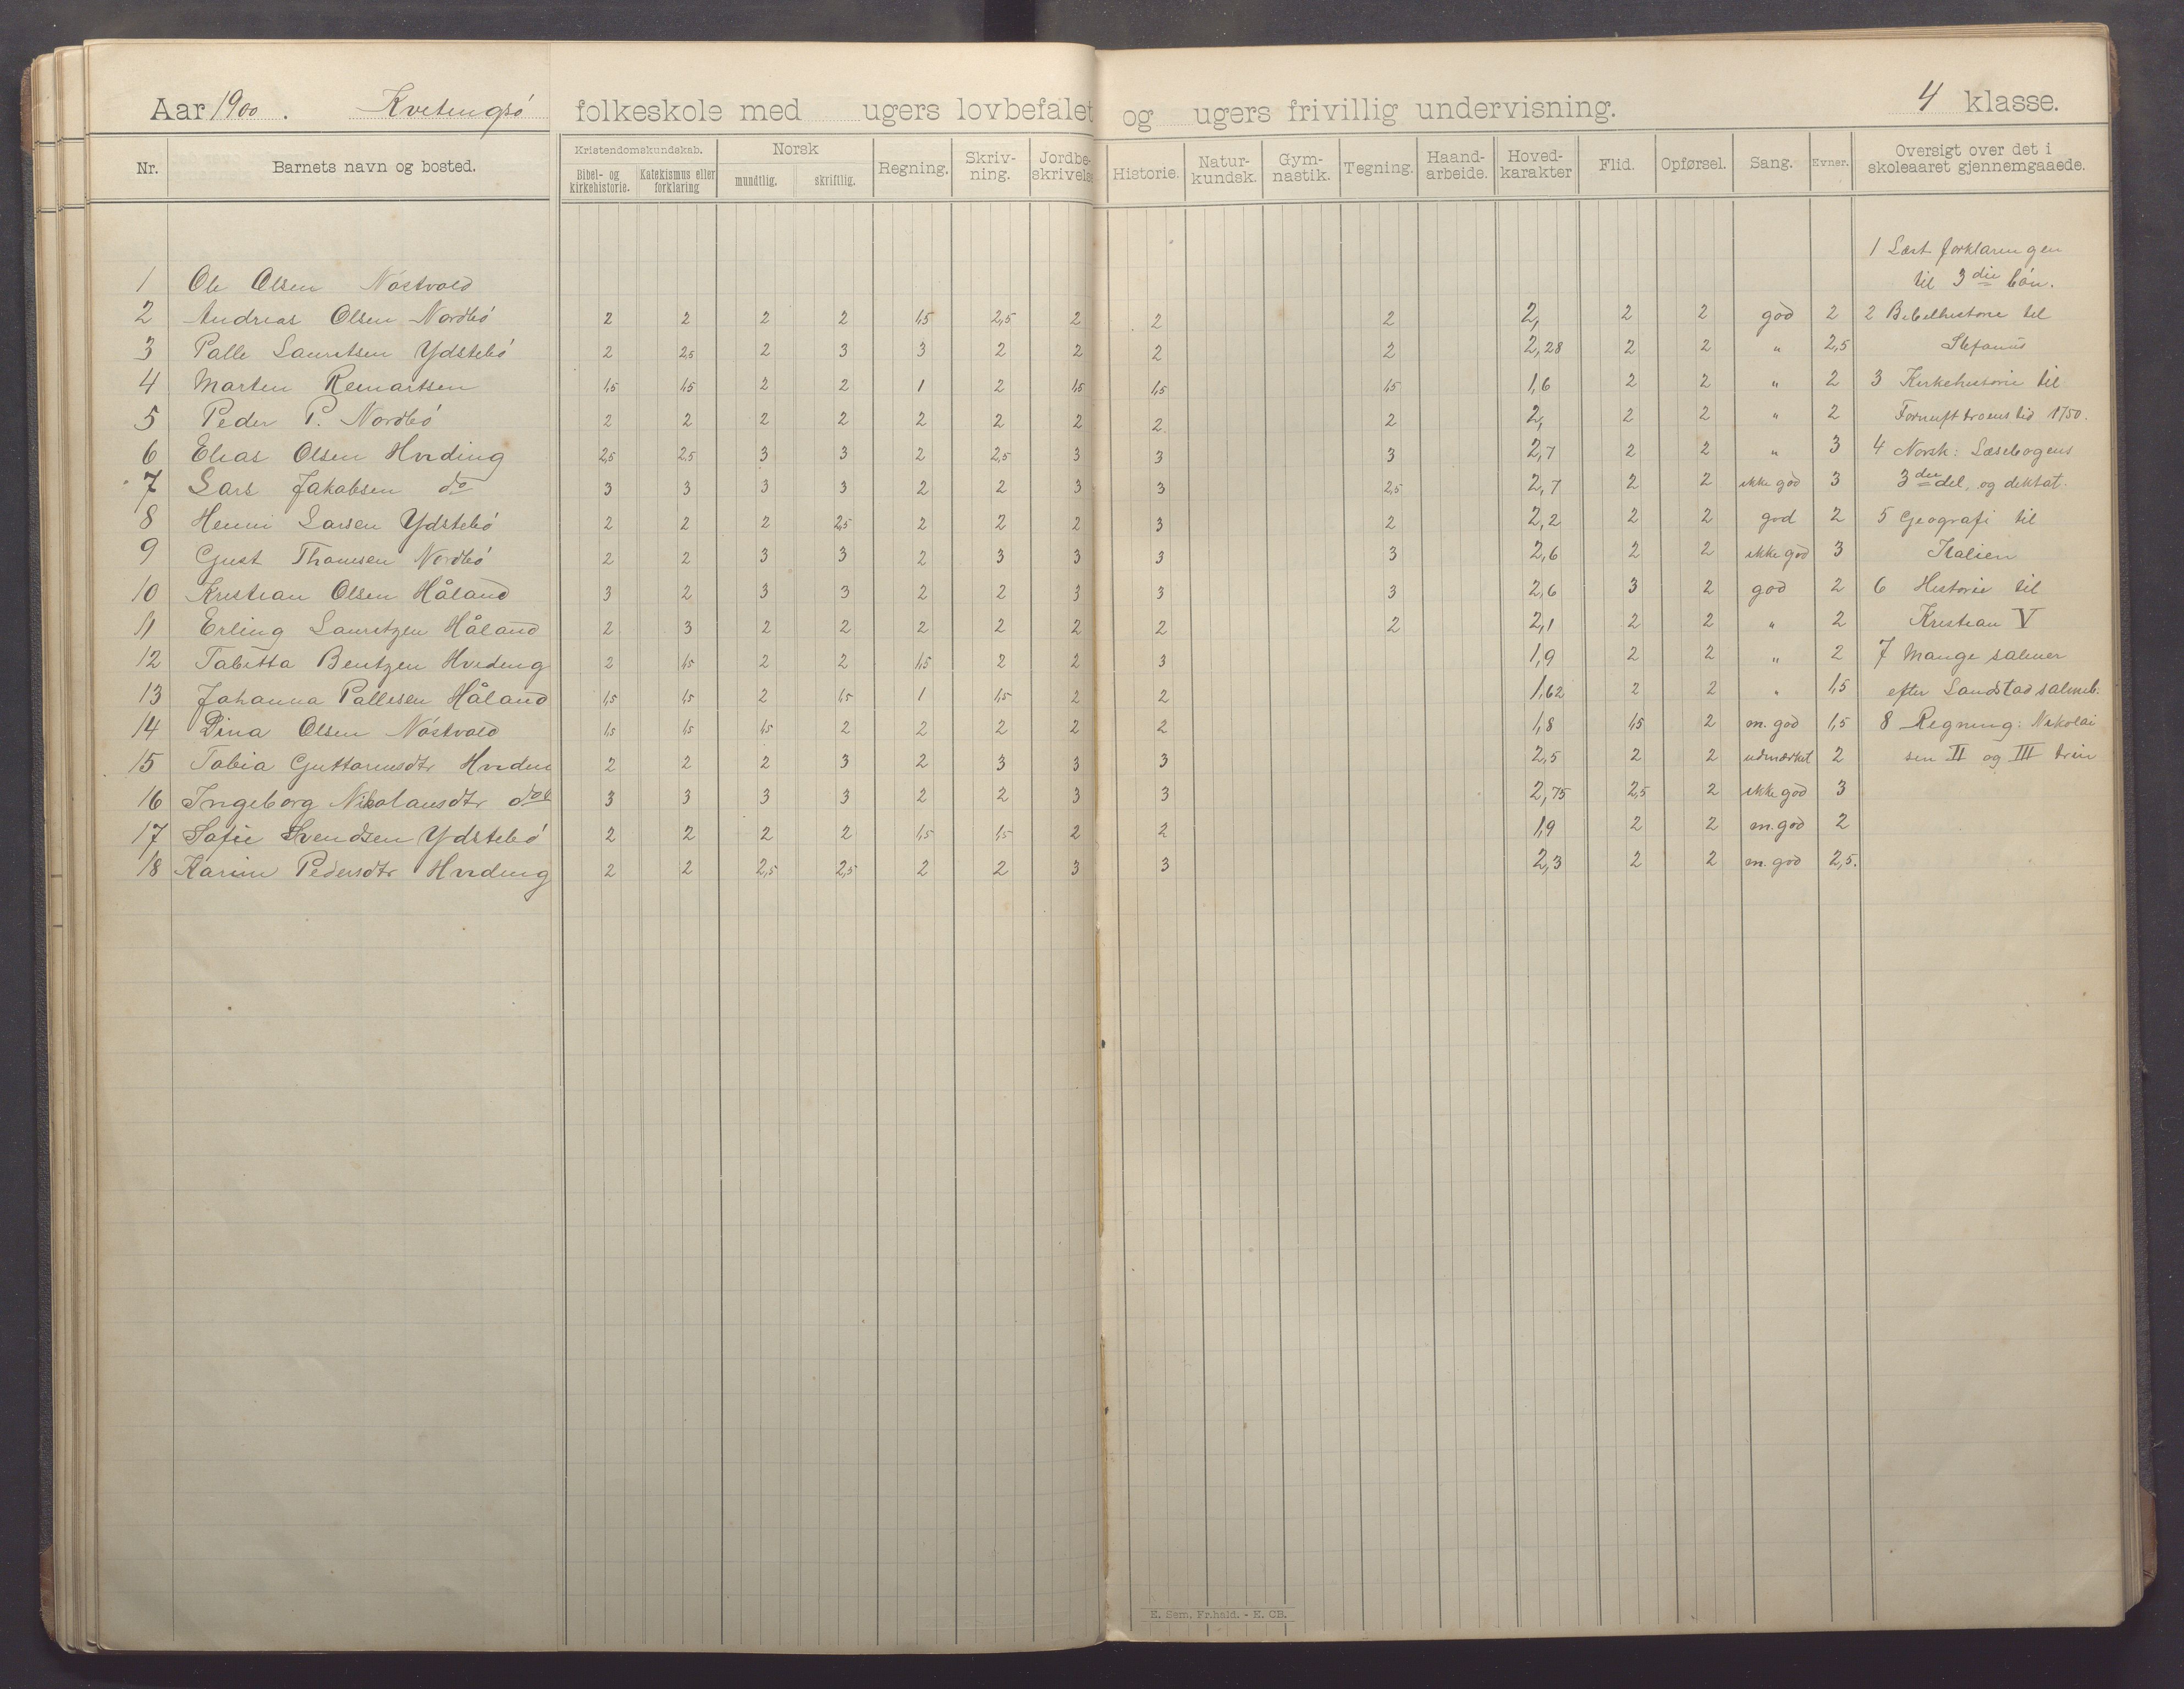 Aar 1900. Kvitingsö folkeskole med ugers lovbefalet og ugers frivillig undervisning. 4 klasse.
Nr. Barnets navn og bosted. Kristendomskundskab. Bibel- og kirkehistorie. Katekismus eller forklaring Norsk mundtlig. skriftlig. Regning. Skriv-ning. Jordbe-skrivelse Historie. Natur-kundsk. Gym-nastik. Tegning. Haand-arbeide. Hoved-karakter Flid. Opførsel. Sang. Evner. Oversigt over det i skoleaaret gjennemgaaede.
1 Læst forklaringen
1 Ole Olsen Nöstvold til 3die bön.
2 Andreas Olsen Nordbö 2 2 2 2 1,5 2,5 2 2 2 2, 2 2 god 2 2 Bibelhistorie til
3 Palle Lauritsen Ydstebö 2 2,5 2 3 3 2 2 2 2 2,28 2 2 " 2,5 Stefanus
4 Marten Reinartsen 1,5 1,5 2 2 1 2 1,5 1,5 1,5 1,6 2 2 " 2 3 Kirkehistorie til
5 Peder P. Nordbö 2 2 2 2 2 2 2 2 2 2, 2 2 " 2 Fornufttroens tid 1750.
6 Elias Olsen Hviding 2,5 2,5 3 3 2 2,5 3 3 3 2,7 2 2 " 3 4 Norsk: Læsebogens
7 Lars Jakobsen do 3 3 3 3 2 2 3 3 2,5 2,7 2 2 ikke god 3 3die del, og diktat.
8 Henni Larsen Ydstebö 2 2 2 2,5 2 2 2 3 2 2,2 2 2 god 2 5 Geografi til
9 Gust Thomsen Nordbö 2 2 3 3 2 3 3 3 3 2,6 2 2 ikke god 3 Italien
10 Kristian Olsen Håland 3 2 3 3 2 2 3 3 3 2,6 3 2 god 2 6 Historie til
11 Erling Lauritzen Håland 2 3 2 2 2 2 2 2 2 2,1 2 2 " 2 Kristian V
12 Tabitta Bentzen Hviding 2 1,5 2 2 1,5 2 2 3 1,9 2 2 " 2 7 Mange salmer
13 Johanna Pallesen Håland 1,5 1,5 2 1,5 1 1,5 2 2 1,62 2 2 " 1,5 efter Landstad salmeb.
14 Dina Olsen Nöstvold 1,5 1,5 1,5 2 2 2 2 2 1,8 1,5 2 m. god 1,5 8 Regning: Nikolai
15 Tobia Guttormsdtr Hvidin 2 2 2 3 2 3 3 3 2,5 2 2 udmærket 2 sen II og III trin
16 Ingeborg Nikolausdtr do 3 3 3 3 2 2 3 3 2,75 2,5 2 ikke god 3
17 Sofie Svendsen Ydstebö 2 2 2 2 1,5 1,5 2 2 1,9 2 2 m. god 2
18 Karin Pedersdtr Hviding 2 2 2,5 2,5 2 2 3 3 2,3 2 2 m. god 2,5.
E. Sem, Fr.hald. - K. CB.